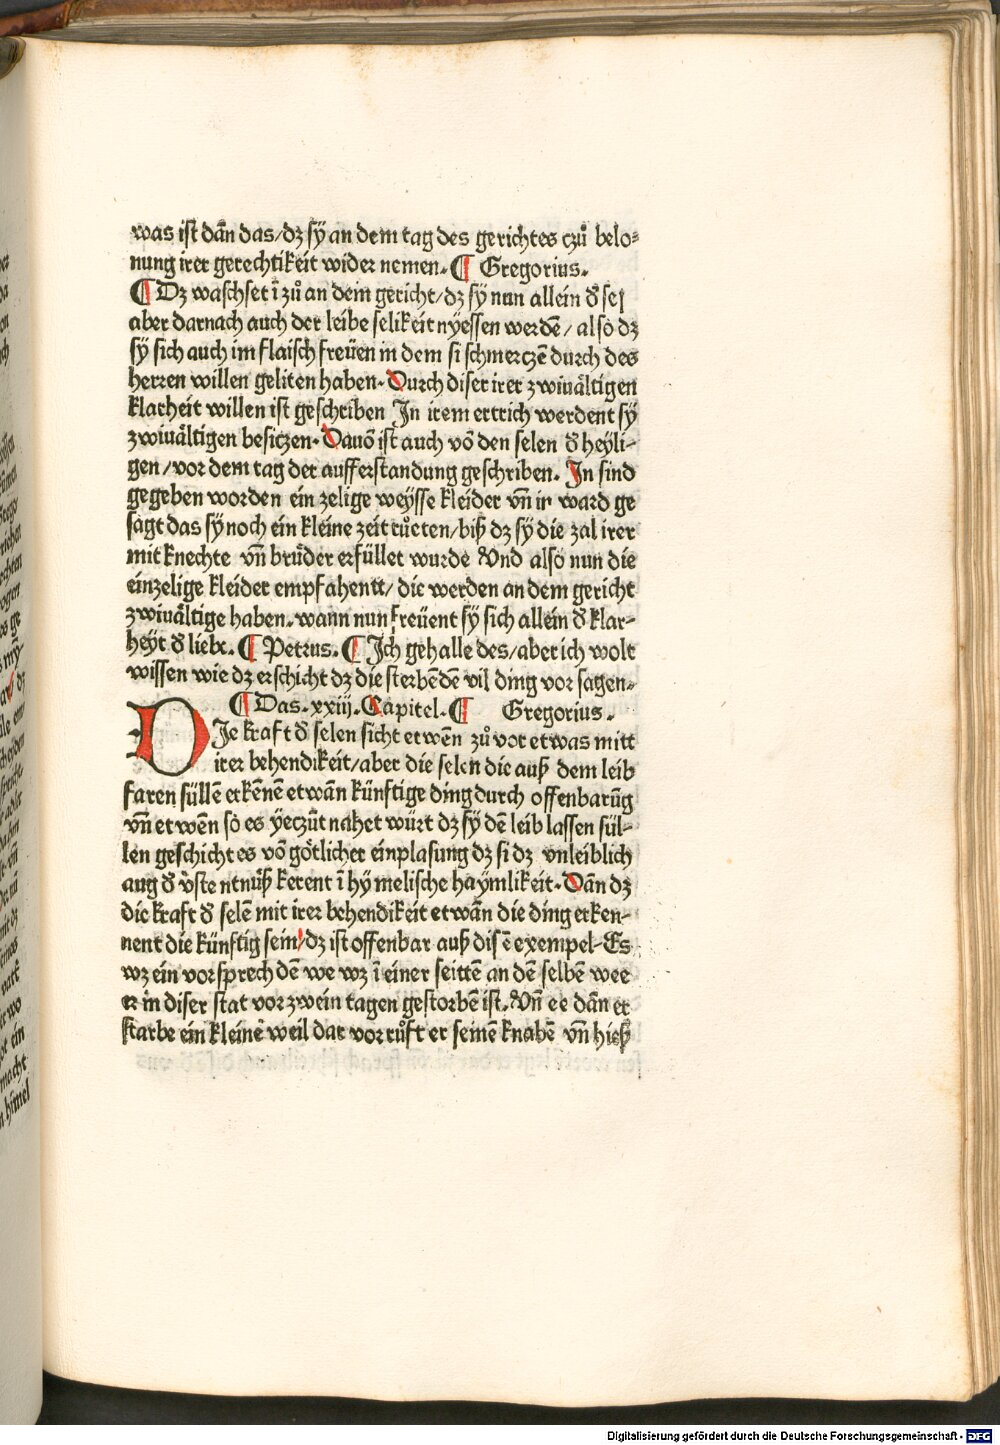 was ist dān das/dz sÿ an dem tag des gerichtes czů belo⸗
nung irer gerechtikeit wider nemen. ¶ Gregorius.
¶ Dz wachset ī zů an dem gericht/dz sÿ nun allein đ sel
aber darnach auch der leibe selikeit nÿessen werdē/ also dz
sÿ sich auch im flaisch freüen in dem si schmerczē durch des
herren willen geliten haben. Durch diser irer zwiuåltigen
klarheit willen ist geschriben In irem ertrich werdent sÿ
zwiuåltigen besiczen. Dauō ist auch vō den selen đ heÿli⸗
gen/vor dem tag der aufferstandung geschriben. In sind
gegeben worden ein zelige weÿsse kleider vn̄ in ward ge
sagt das sÿ noch ein kleine zeit růeten/biß dz sÿ die zal irer
mit knechte vn̄ brůder erfüllet wurde Vnd also nun die
einzelige kleider empfahentt/ die werden an dem gericht
zwiuåltige haben. wann nun freüent sÿ sich allein đ klar⸗
heÿt đ liebe. ¶ Petrus. ¶ Ich gehalle des/aber ich wolt
wissen wie dz erschicht dz die sterbēdē vil ding vor sagen⸗
¶ Das. xxiij. Capitel. ¶ Gregorius.
DIe kraft đ selen sicht etwēn zů vor etwas mitt
irer behendikeit/aber die selen die auß dem leib
faren süllē erkēnē etwān künftige ding durch offenbarūg
vn̄ etwēn so es ÿeczūt nahet würt dz sÿ dē leib lassen sül⸗
len geschicht es vō götlicher einplasung dz si dz vnleiblich
aug đ v̓ste ntnüß kerent ī hÿ melische haÿmlikeit. Dān dz
die kraft đ selē mit irer behendikeit etwān die ding erken⸗
nent die künftig sein/dz ist offenbar auß disē exempel. Es
wz ein vorsprech dē we wz ī einer seittē an dē selbē wee
er in diser stat vor zwein tagen gestorbē ist. Vn̄ ee dān er
starbe ein kleine weil dar vor růft er seinē knabē vn̄ hieß
Digitalisierung gefördert durch die Deutsche Forschungsgemeinschaft - DFG